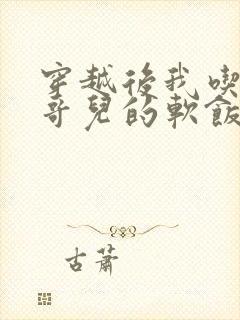 穿越後我喫
哥兒的軟飯
古蕭